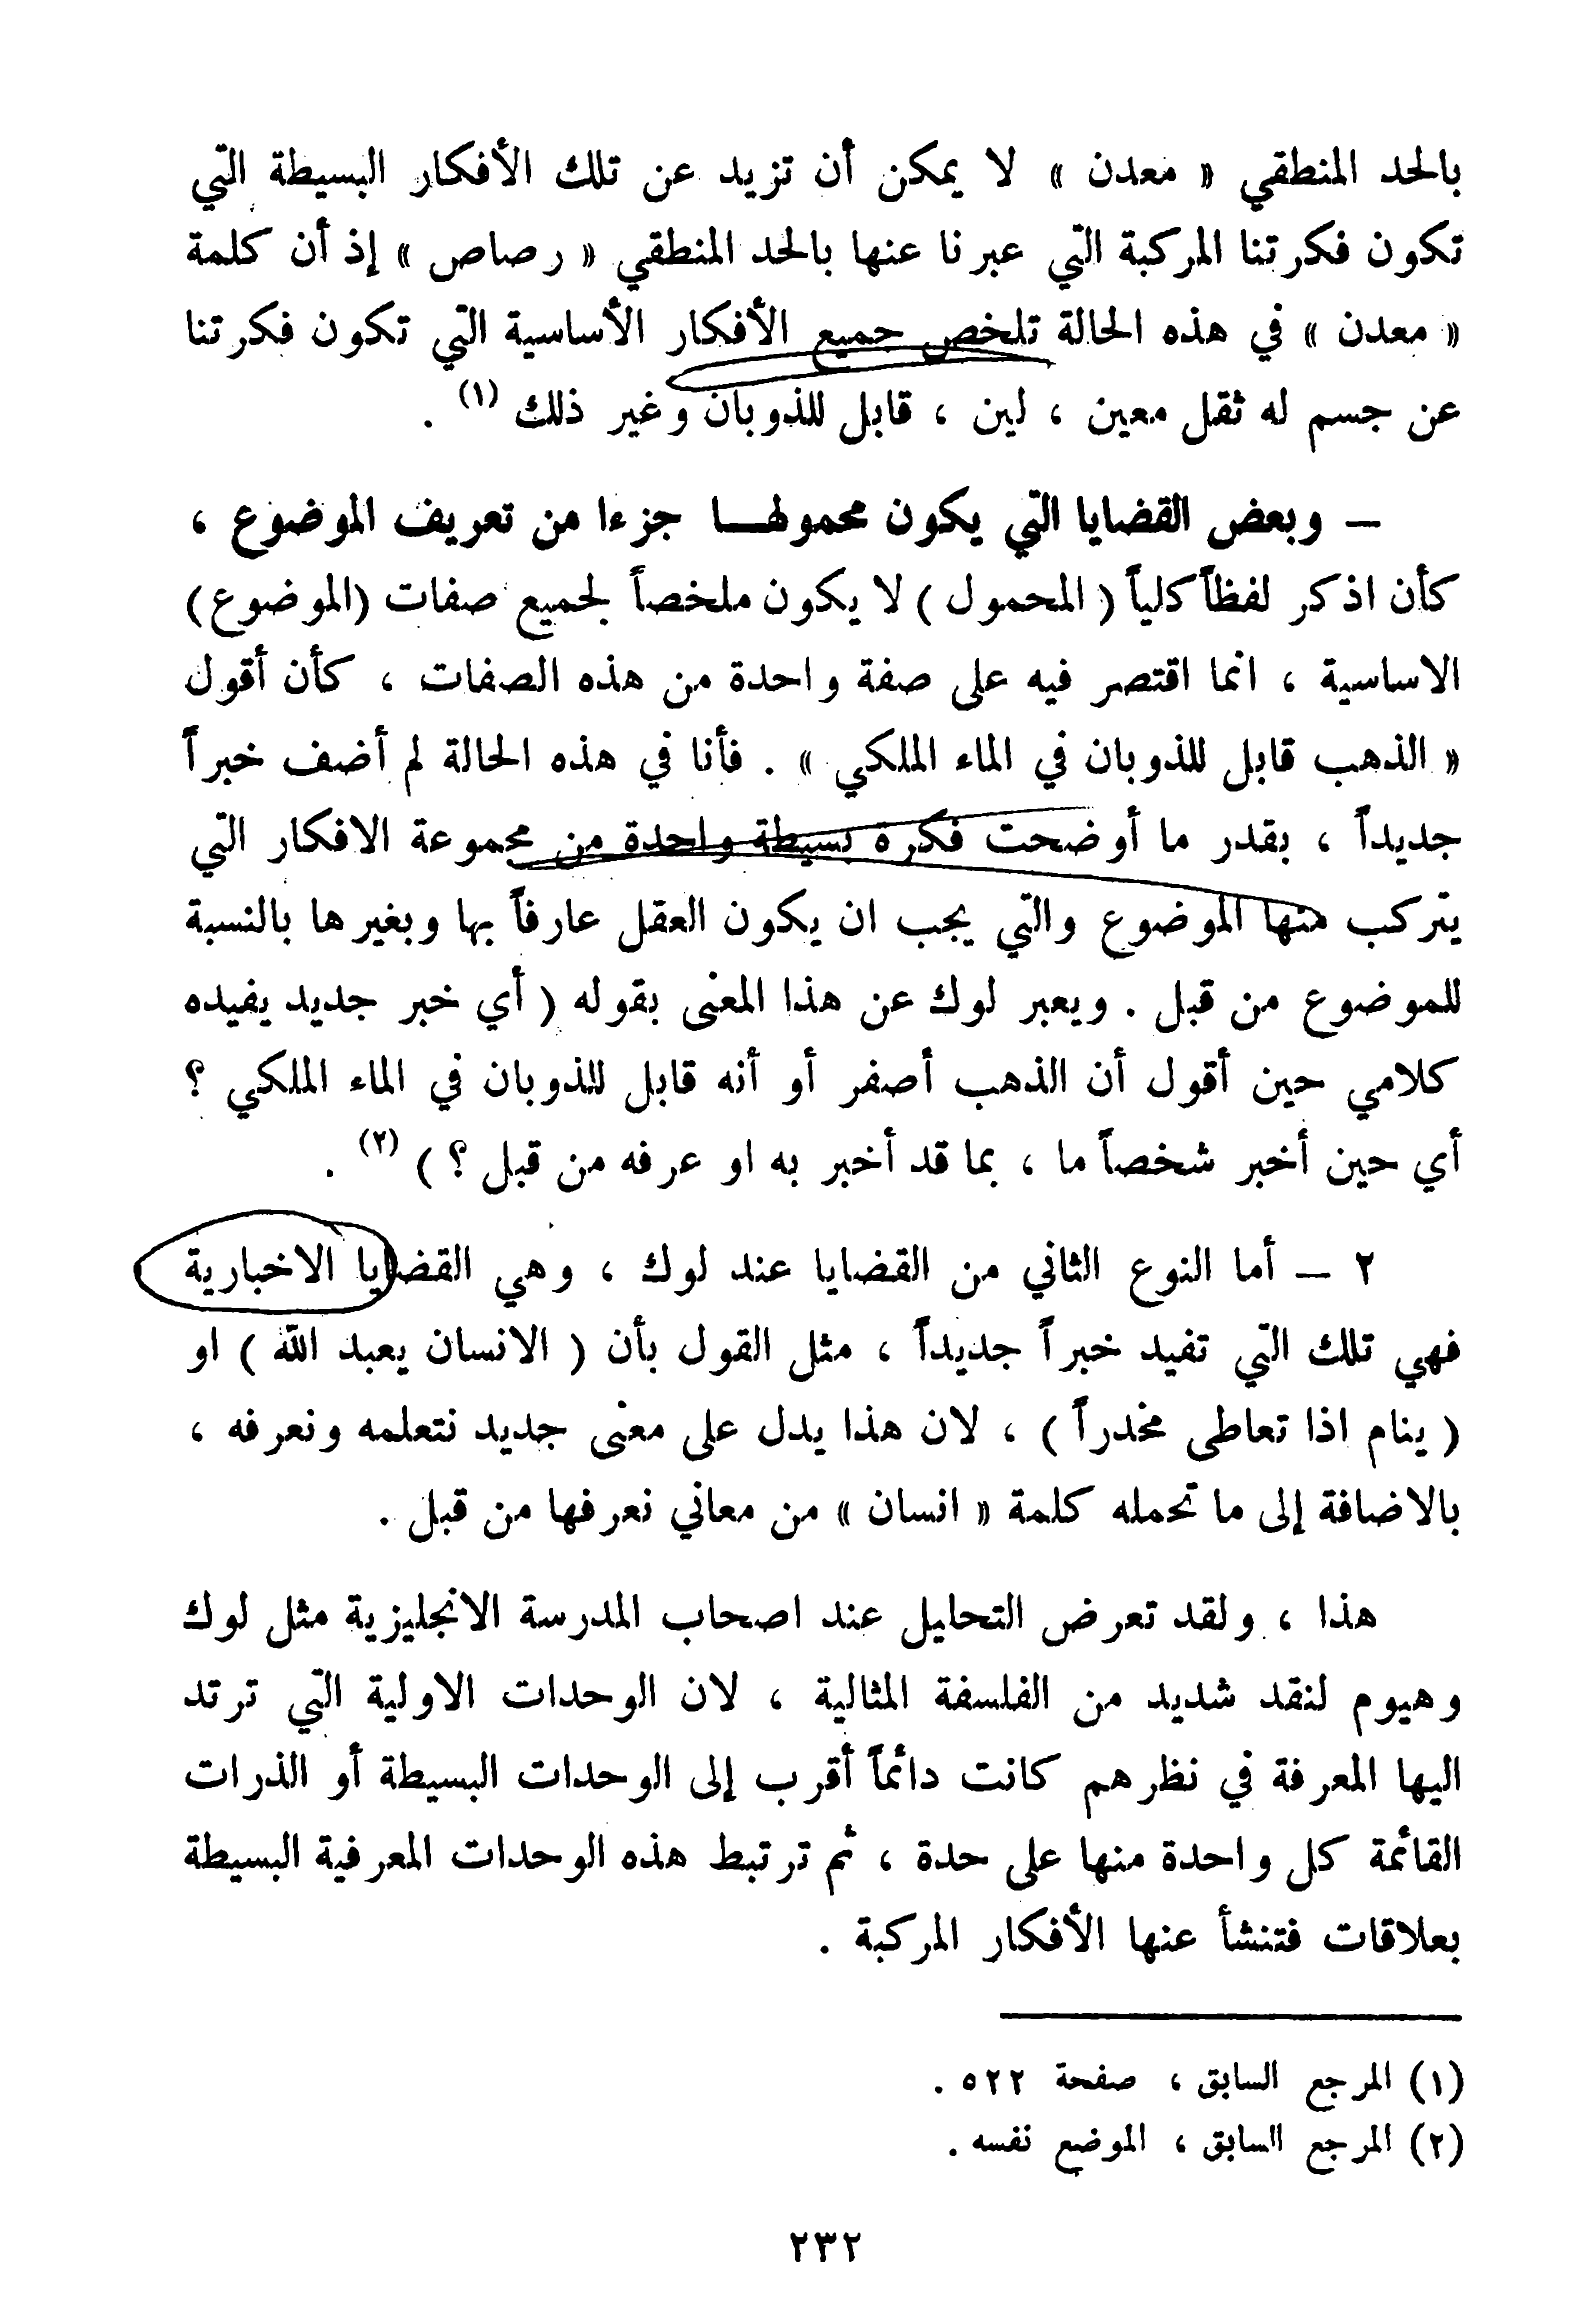 بالحد المنطقي « معدن » لا يمكن أن تزيد عن تلك الأفكار البسيطة التي
تكون فكرتنا المركبة التي عبرنا عنها بالحد المنطقي « رصاص » إذ أن كلمة
« معدن » في هذه الحالة تلخص جميع الأفكار الأساسية التي تكون فكرتنا
عن جسم له ثقل معين ، لين ، قابل للذوبان وغير ذلك (١) .
— وبعض القضايا التي يكون محمولهـــا جزءا من تعريف الموضوع ،
كأن اذكر لفظاً كلياً ( المحمول ) لا يكون ملخصاً لجميع صفات (الموضوع)
الاساسية ، انما اقتصر فيه على صفة واحدة من هذه الصفات ، كأن أقول
« الذهب قابل للذوبان في الماء الملكي » . فأنا في هذه الحالة لم أضف خبراً
جديداً ، بقدر ما أوضحت فكرة بسيطة واحدة من مجموعة الافكار التي
يتركب منها الموضوع والتي يجب ان يكون العقل عارفاً بها وبغيرها بالنسبة
للموضوع من قبل . ويعبر لوك عن هذا المعنى بقوله ( أي خبر جديد يفيده
كلامي حين أقول أن الذهب أصفر أو أنه قابل للذوبان في الماء الملكي ؟
أي حين أخبر شخصاً ما ، بما قد أخبر به او عرفه من قبل ؟ ) (٢) .
٢ — أما النوع الثاني من القضايا عند لوك ، وهي القضايا الاخبارية
فهي تلك التي تفيد خبراً جديداً ، مثل القول بأن ( الانسان يعبد الله ) او
( ينام اذا تعاطى مخدراً ) ، لان هذا يدل على معنى جديد نتعلمه ونعرفه ،
بالاضافة إلى ما تحمله كلمة « انسان » من معاني نعرفها من قبل .
هذا ، ولقد تعرض التحليل عند اصحاب المدرسة الانجليزية مثل لوك
وهيوم لنقد شديد من الفلسفة المثالية ، لان الوحدات الاولية التي ترتد
اليها المعرفة في نظرهم كانت دائماً أقرب إلى الوحدات البسيطة أو الذرات
القائمة كل واحدة منها على حدة ، ثم ترتبط هذه الوحدات المعرفية البسيطة
بعلاقات فتنشأ عنها الأفكار المركبة .
(١) المرجع السابق ، صفحة ٥٢٢ .
(٢) المرجع السابق ، الموضع نفسه .
٢٣٢